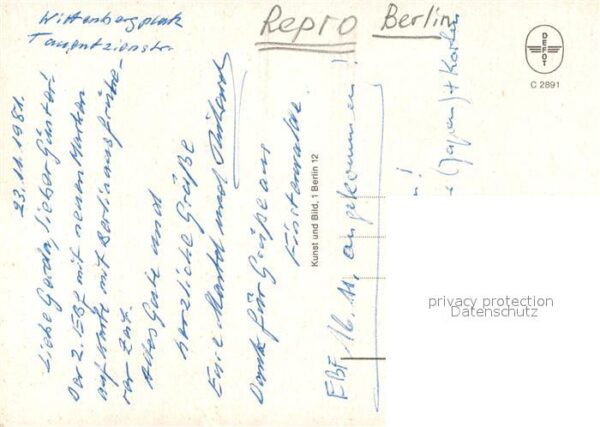 Wittenbergplatz
Tauentzienstr.
Repro Berlin
DEFOT
C 2891
23.11.1981.
Liebe Gerda, lieber Günter!
Der 2. EBF mit neuen Marken
auf Karte mit Berlin aus früherer Zeit.
Alles Gute und
herzliche Grüße
Eure Martel und
Dank für Grüße aus
Finsterwalde.
EBF 16.11. angekommen!
(Japan) + Karten
!
Kunst und Bild, 1 Berlin 12
privacy protection
Datenschutz